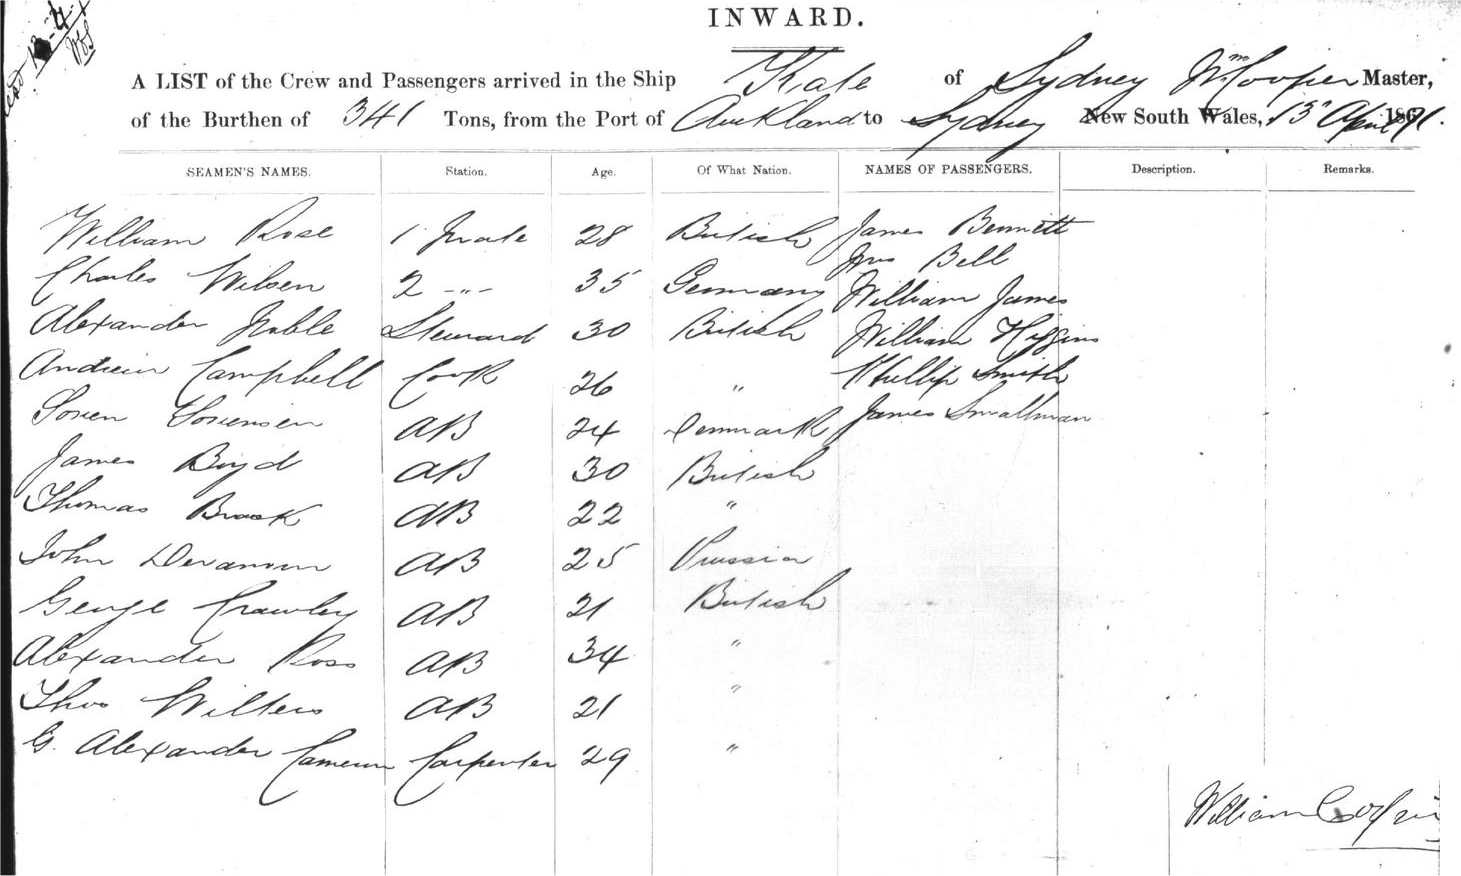 INWARD.
A LIST of the Crew and Passengers arrived in the Ship Kate of Sydney Wm Cooper Master,
of the Burthen of 341 Tons, from the Port of Auckland to Sydney New South Wales, 13 April 1871.
SEAMEN'S NAMES. Station. Age. Of What Nation. NAMES OF PASSENGERS. Description. Remarks.
William Rose 1 Mate 28 British James Bennett
Jno Bell
Charles Wilsen 2 -"- 35 Germany William James
Alexander Noble Steward 30 British William Higgins
Andrew Campbell Cook 26 " Phillip Smith
Soren Sorensen AB 24 Denmark James Smallman
James Boyd AB 30 British
Thomas AB 22 "
John AB 25 Prussian
George Crawley AB 21 British
Alexander Ross AB 34 "
Thos Wilters AB 21 "
G. Alexander Cameron Carpenter 29 "
William